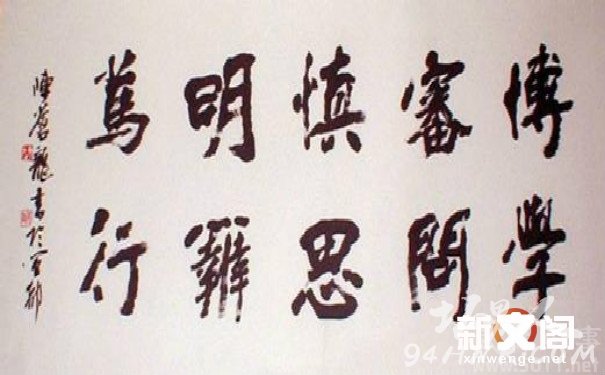 博學
審問
慎思
明辨
篤行
新文阁
xinwenge.net